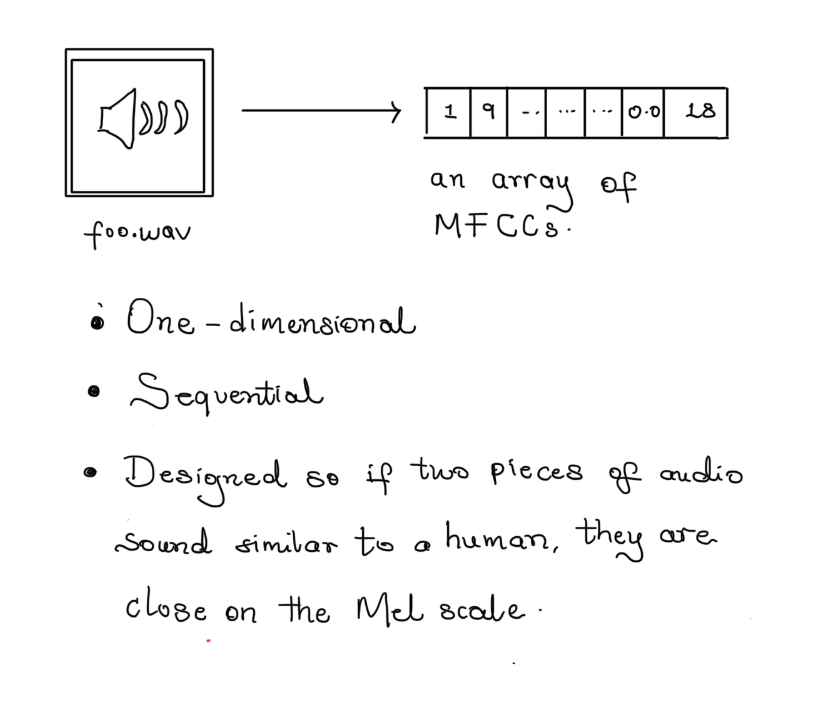 1 9 -.. ... ... 0.0 18
an array of
MFCCs.
foo.wav
• One-dimensional
• Sequential
• Designed so if two pieces of audio
sound similar to a human, they are
close on the Mel scale.